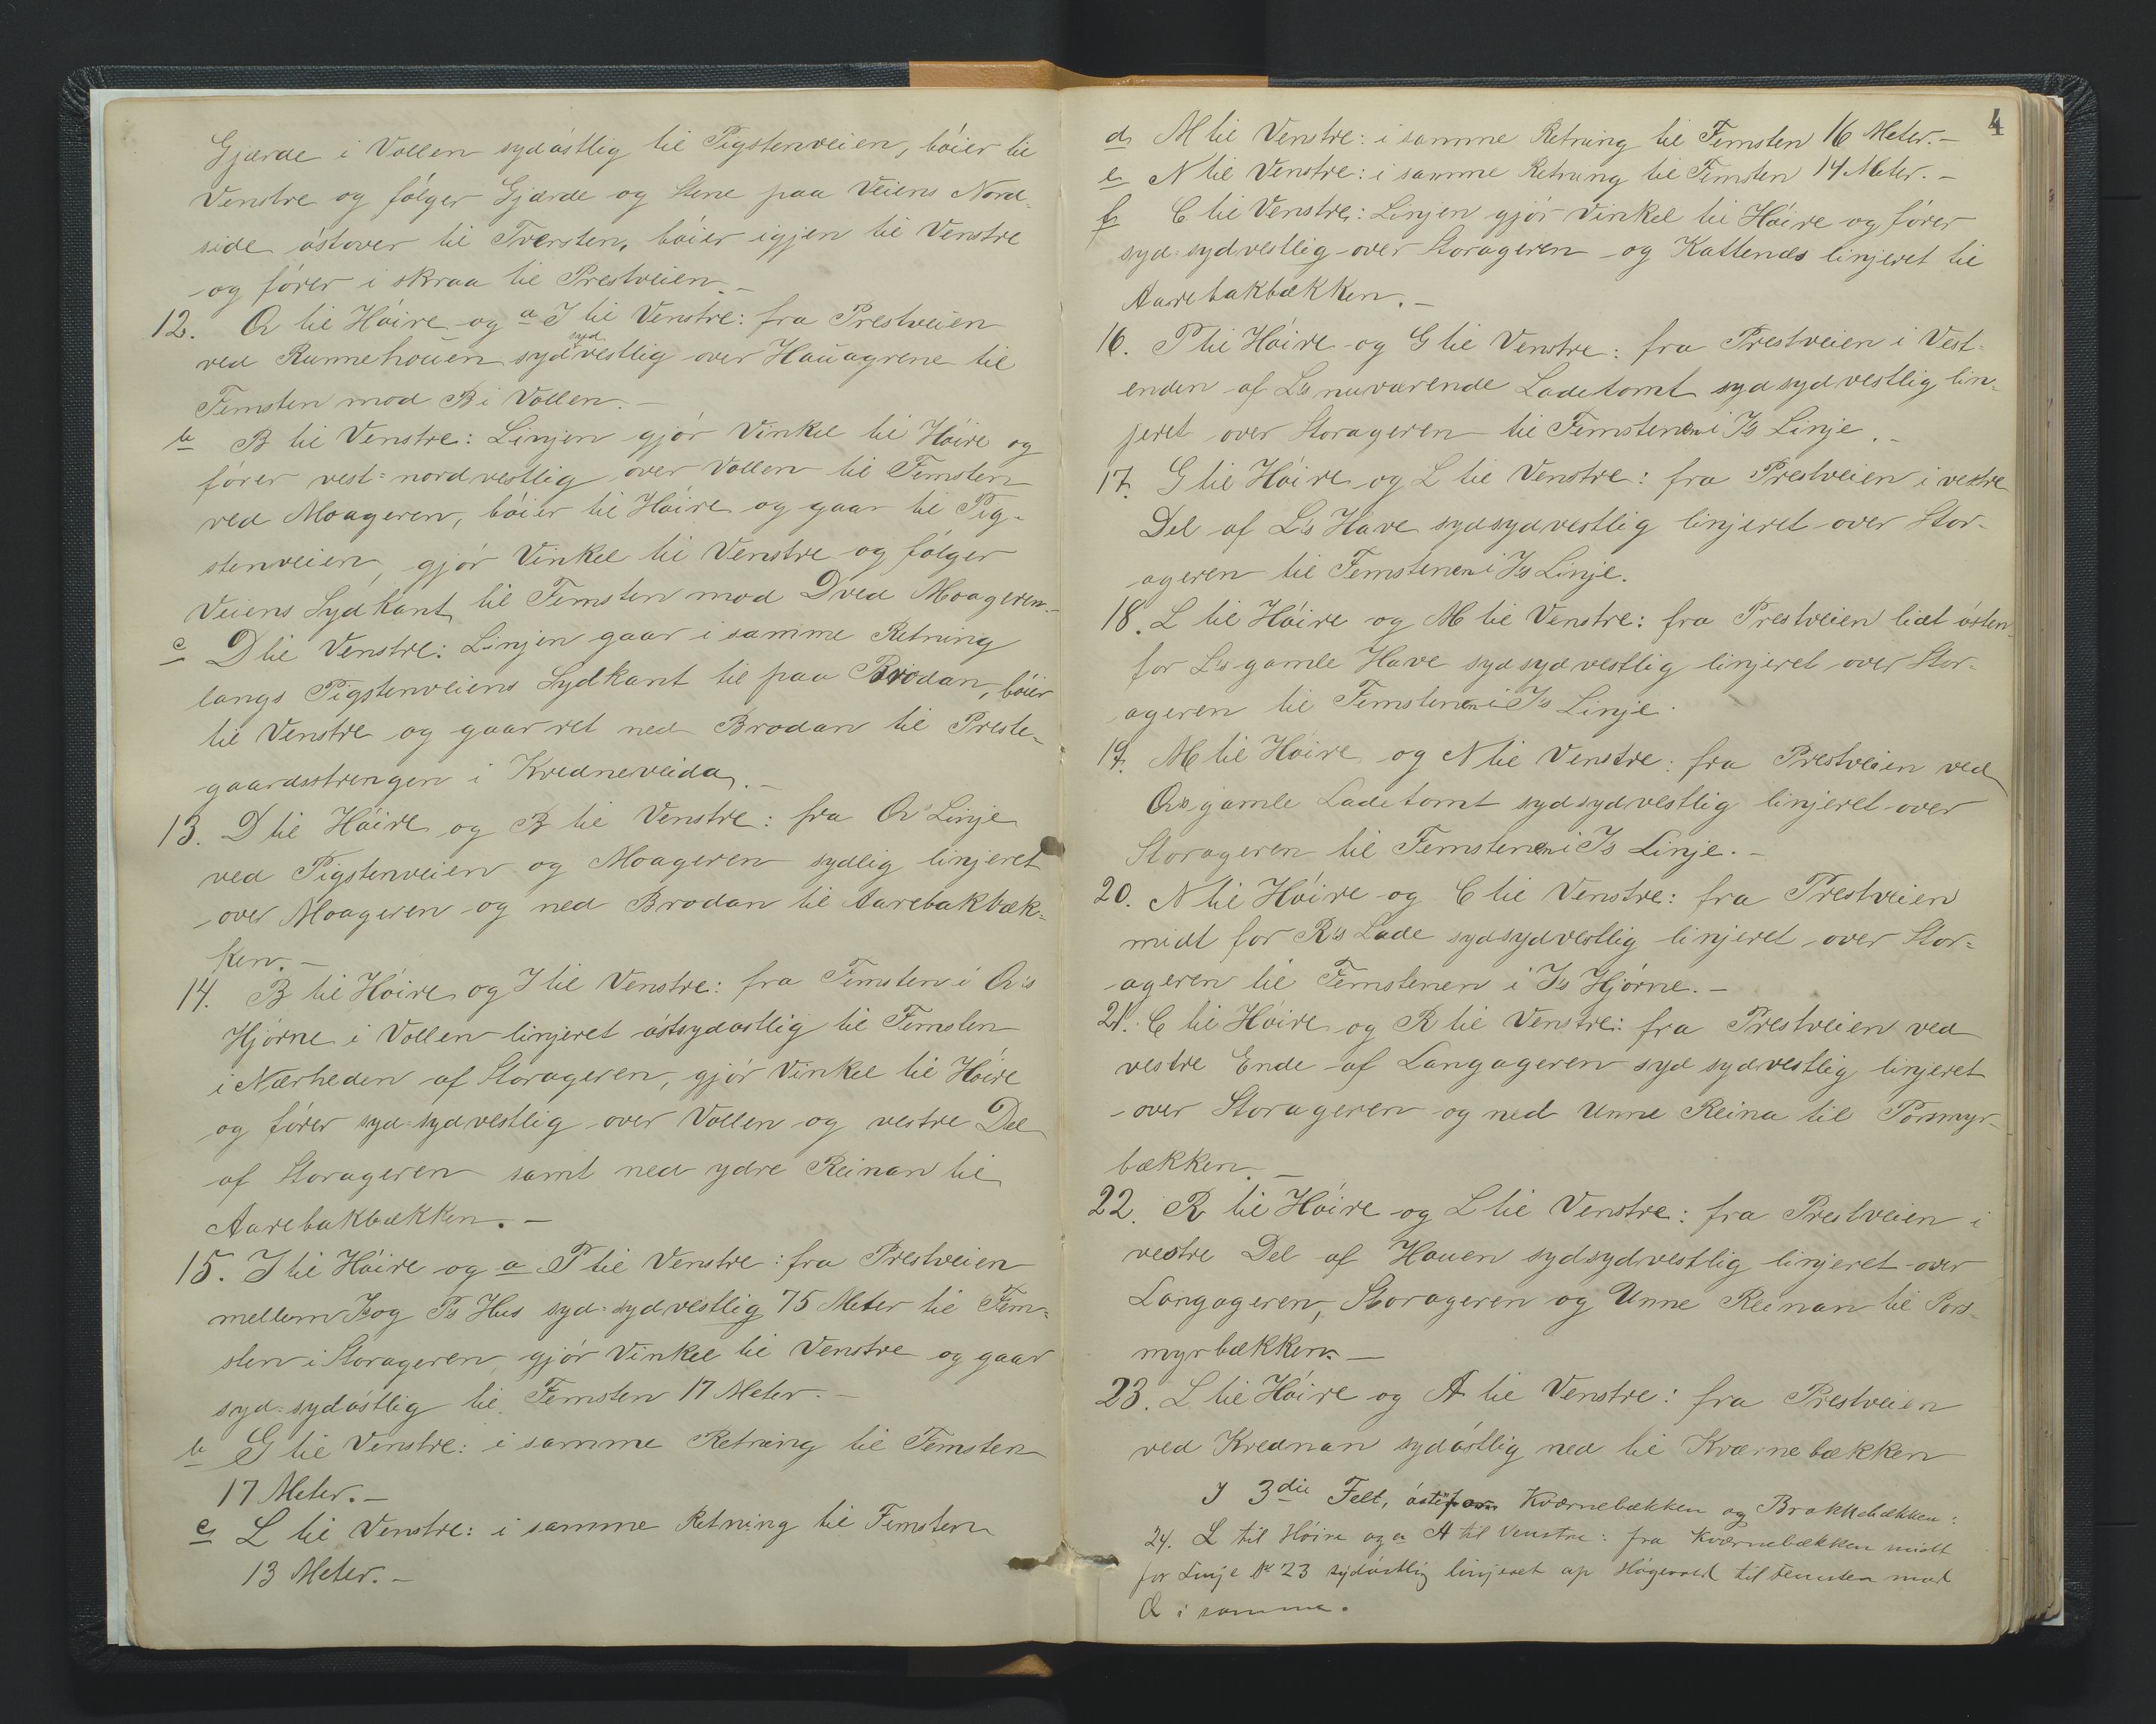 Gjærde i Vollen sydøstlig til Pigstenveien, bøier til
Venstre og følger Gjærde og Stene paa Veiens Nord-
side østover til Tversten, bøier igjen til Venstre
og fører i skraa til Prestveien. -
12. Q til Høire og a I til Venstre: fra Prestveien
ved Runnehouen sydsydvestlig over Hauagrene til
Femsten mod B i Vollen. -
b B til Venstre: Linjen gjør Vinkel til Høire og
fører vest=nordvestlig over Vollen til Femsten
ved Moageren, bøier til Høire og gaar til Pig-
stenveien, gjør Vinkel til Venstre og følger
Veiens Sydkant til Femsten mod D ved Moageren. -
c D til Venstre: Linjen gaar i samme Retning
langs Pigstenveiens Sydkant til paa Brodan, bøier
til Venstre og gaar ret ned Brodan til Preste-
gaardsstrengen i Kredneveida. -
13. D til Høire og B til Venstre: fra Q's Linje
ved Pigstenveien og Moageren sydlig linjeret
over Moageren og ned Brodan til Aarebakbæk-
ken. -
14. B til Høire og I til Venstre: fra Femsten i Q's
Hjørne i Vollen linjeret østsydøstlig til Femsten
i Nærheden af Storageren, gjør Vinkel til Høire
og fører syd=sydvestlig over Vollen og vestre Del
af Storageren samt ned ydre Reinan til
Aarebakbækken. -
15. I til Høire og a P til Venstre: fra Prestveien
mellem Is og Ps Hus syd=sydvestlig 75 Meter til Fem-
sten i Storageren, gjør Vinkel til Venstre og gaar
syd=sydøstlig til Femsten 17 Meter. -
b G til Venstre: i samme Retning til Femsten
17 Meter. -
c L til Venstre: i samme Retning til Femsten
13 Meter. -
4
d M til Venstre: i samme Retning til Femsten 16 Meter. -
e N til Venstre: i samme Retning til Femsten 14 Meter. -
f C til Venstre: Linjen gjør Vinkel til Høire og fører
syd=sydvestlig over Storageren og Kattenæs linjeret til
Aarebakbækken. -
16. P til Høire og G til Venstre: fra Prestveien i Vest-
enden af Ls nuværende Ladetomt sydsydvestlig lin-
jeret over Storageren til Femstenen i Is Linje. -
17. G til Høire og L til Venstre: fra Prestveien i vestre
Del af Ls Have sydsydvestlig linjeret over Stor-
ageren til Femstenen i Is Linje.
18. L til Høire og M til Venstre: fra Prestveien lidt østen-
for Ls gamle Have sydsydvestlig linjeret over Stor-
ageren til Femstenen i Is Linje.
19. M til Høire og N til Venstre: fra Prestveien ved
Qs gamle Ladetomt sydsydvestlig linjeret over
Storageren til Femstenen i Is Linje. -
20. N til Høire og C til Venstre: fra Prestveien
midt for R's Lade sydsydvestlig linjeret over Stor-
ageren til Femstenen i Is Hjørne. -
21. C til Høire og R til Venstre: fra Prestveien ved
vestre Ende af Langageren syd sydvestlig linjeret
over Storageren og ned Unne Reina til Porsmyr-
bækken. -
22. R til Høire og L til Venstre: fra Prestveien i
vestre Del af Houen sydsydvestlig linjeret over
Langageren, Storageren og Unne Reinan til Pors-
myrbækken. -
23. L til Høire og A til Venstre: fra Prestveien
ved Krednan sydøstlig ned til Kværnebækken
I 3die Felt, østenfor Kværnebækken og Brakkebækken:
24. L til Høire og a A til Venstre: fra Kværnebækken midt
for Linje No 23 sydøstlig linjeret op Høgevold til Femsten mod
Q i samme.